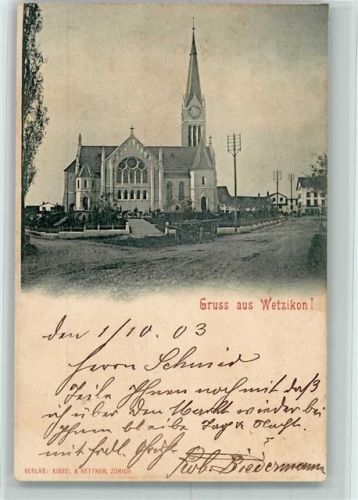 Gruss aus Wetzikon!
den 1/10. 03
Herrn Schmid
Teile Ihnen noch mit daß
ich über den Markt wieder bei
Ihnen bleibe Tag & Nacht.
mit frdl. Grüße
Jakob Biedermann
VERLAG: KISSEL & HETTNER, ZÜRICH